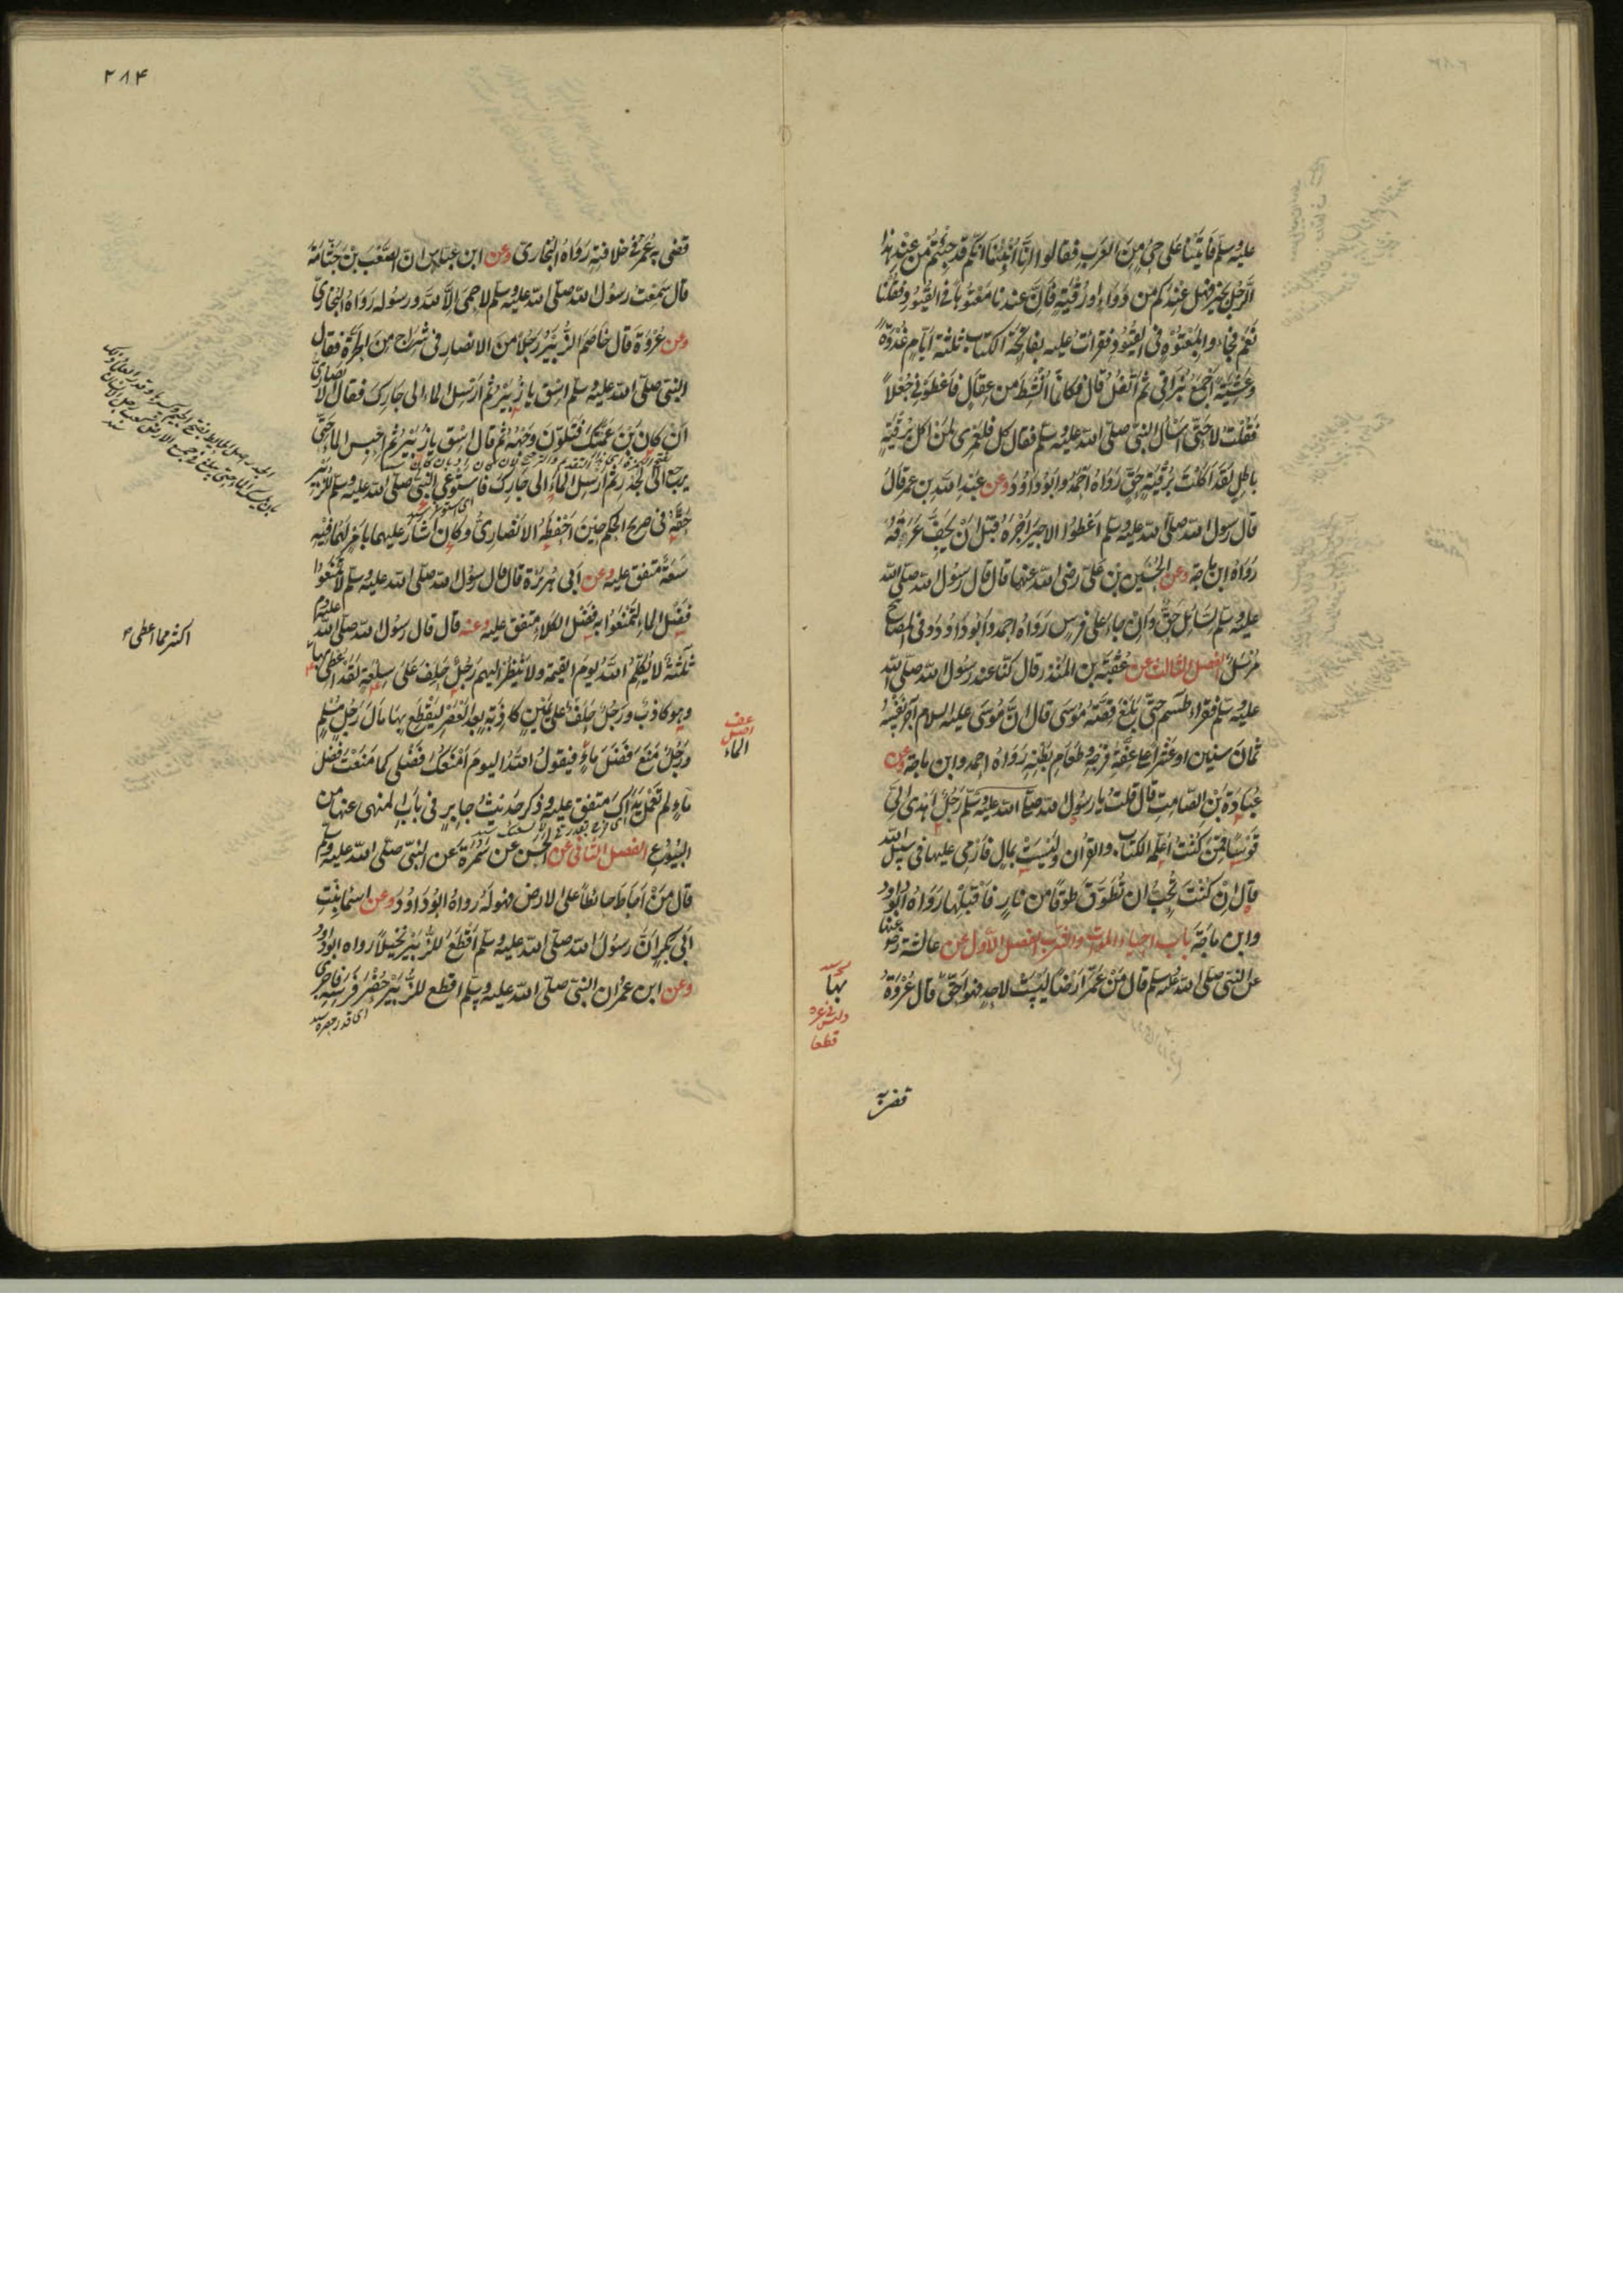 عليه وسلم فاتينا على حي من العرب فقالوا انا انبئنا انكم قد جئتم من عند هذا
الرجل بخير فهل عندكم من دواء او رقية فان عندنا معتوها في القيود فقلنا
نعم فجاءوا بمعتوه في القيود فقرأت عليه بفاتحة الكتاب ثلثة ايام غدوة
وعشية اجمع بزاقي ثم اتفل قال فكانما انشط من عقال فاعطوني جعلا
فقلت لا حتى اسأل النبي صلى الله عليه وسلم فقال كل فلعمري لمن اكل برقية
باطل لقد اكلت برقية حق رواه احمد وابو داود وعن عبد الله بن عمر قال
قال رسول الله صلى الله عليه وسلم اعطوا الاجير اجره قبل ان يجف عرقه
رواه ابن ماجة وعن الحسين بن علي رضي الله عنهما قال قال رسول الله صلى الله
عليه وسلم للسائل حق وان جاء على فرس رواه احمد وابو داود وفي المصابيح
مرسل الفصل الثالث عن عقبة بن المنذر قال كنا عند رسول الله صلى الله
عليه وسلم فقرأ طسم حتى بلغ قصة موسى قال ان موسى عليه السلام آجر نفسه
ثمان سنين او عشرا على عفة فرجه وطعام بطنه رواه احمد وابن ماجة وعن
عبادة بن الصامت قال قلت يا رسول الله صلى الله عليه وسلم رجل اهدى الي
قوسا ممن كنت اعلمه الكتاب والقرآن وليست بمال فارمي عليها في سبيل الله
قال ان كنت تحب ان تطوق طوقا من نار فاقبلها رواه ابو داود
وابن ماجة باب احياء الموات والشرب الفصل الاول عن عائشة رضي عنها
عن النبي صلى الله عليه وسلم قال من عمر ارضا ليست لاحد فهو احق قال عروة
بها
قضى به
٢٨٤
قضى به عمر في خلافته رواه البخاري وعن ابن عباس ان الصعب بن جثامة
قال سمعت رسول الله صلى الله عليه وسلم لا حمى الا لله ورسوله رواه البخاري
وعن عروة قال خاصم الزبير رجلا من الانصار في شراج من الحرة فقال
النبي صلى الله عليه وسلم اسق يا زبير ثم ارسل الماء الى جارك فقال الانصاري
ان كان بن عمتك فتلون وجهه ثم قال اسق يا زبير ثم احبس الماء حتى
يرجع الى الجدر ثم ارسل الماء الى جارك فاستوعى النبي صلى الله عليه وسلم للزبير
حقه في صريح الحكم حين احفظه الانصاري وكان اشار عليهما بامر لهما فيه
سعة متفق عليه وعن ابي هريرة قال قال رسول الله صلى الله عليه وسلم لا تمنعوا
فضل الماء لتمنعوا به فضل الكلاء متفق عليه وعنه قال قال رسول الله صلى الله عليه وسلم
ثلثة لا يكلمهم الله يوم القيمة ولا ينظر اليهم رجل حلف على سلعة لقد اعطى بها
اكثر مما اعطى
وهو كاذب ورجل حلف على يمين كاذبة بعد العصر ليقطع بها مال رجل مسلم
ورجل منع فضل ماء فيقول الله اليوم امنعك فضلي كما منعت فضل
الماء
ماء لم تعمل يداك متفق عليه وذكر حديث جابر في باب المنهي عنها من
البيوع الفصل الثاني عن الحسن عن سمرة عن النبي صلى الله عليه وسلم
قال من احاط حائطا على الارض فهو له رواه ابو داود وعن اسما بنت
ابي بكر ان رسول الله صلى الله عليه وسلم اقطع للزبير نخيلا رواه ابو داود
وعن ابن عمر ان النبي صلى الله عليه وسلم اقطع للزبير حضر فرسه فاجرى